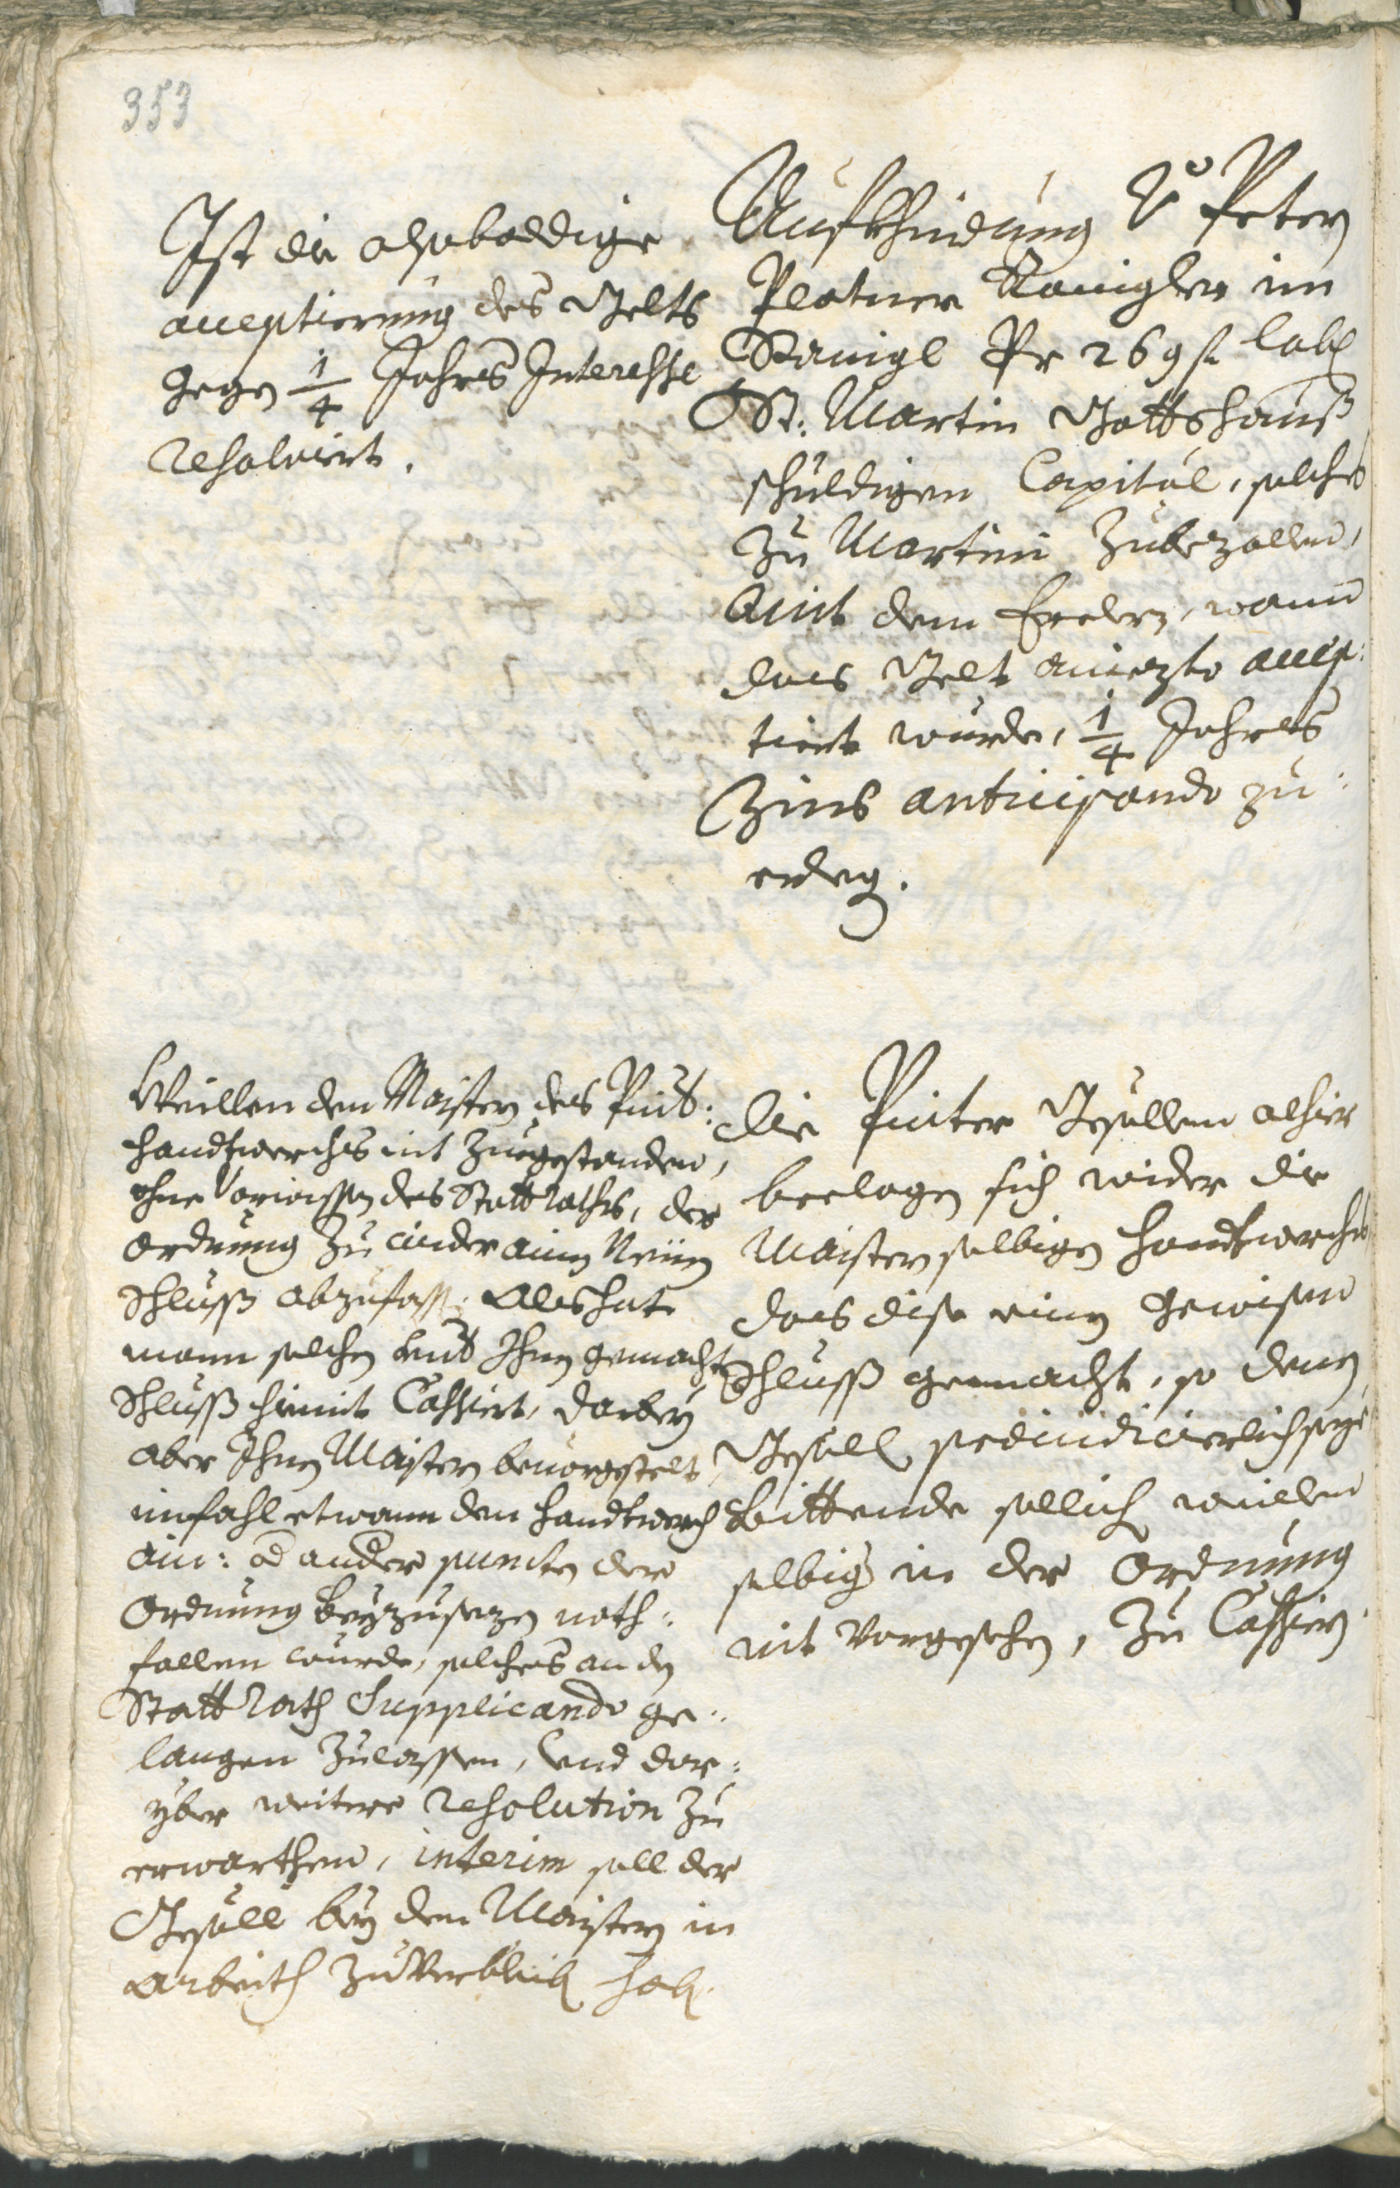 353
Ist die alsobaldige
acceptierung des Gelts
gegen 1/4 Jahrs Interesse
resolviert.
Aufkhindung Peter
Platner im
Pr 269 f. lob
St: Martin Gottshauß
schuldigen Capital, solches
zu Martini zubezallen,
mit dem , wann
das Gelt aniezto accep:
tiert wurde, 1/4 Jahres
Zins anticipando zu:
Weillen den Maistern des Pint:
handtwerchs nit zuegestanden,
ohne Vorwissen des Statt Raths, der
Ordnung zu wider ainen Neuen
Schluß abzufass: Als hat
mann solchen unter Ihnen gemachten
Schluß hiemit Cassiert, darbey
aber Ihnen Maistern bevorgestelt
imfahl etwann dem handtwerch
ain: od andere puncten der
Ordnung beyzusezen noth:
fallen wurde, solches an den
Statt Rath Supplicando ge:
langen zulassen, und dar:
yber weitere resolution zu
erwarthen, interim soll der
Gesöll bey dem Maistern in
arbeith zuverbleiben hab.
Die Pinter Gesöllen alhier
beclagen sich wider die
Maister selbigen handtwerchs
das dise einen gewisen
Schluß gemacht, so denen
Gesöllen preiudicierlich seye
Bittende sollich weillen
selbiger in der Ordnung
nit vorgesehen, zu Cassiern.